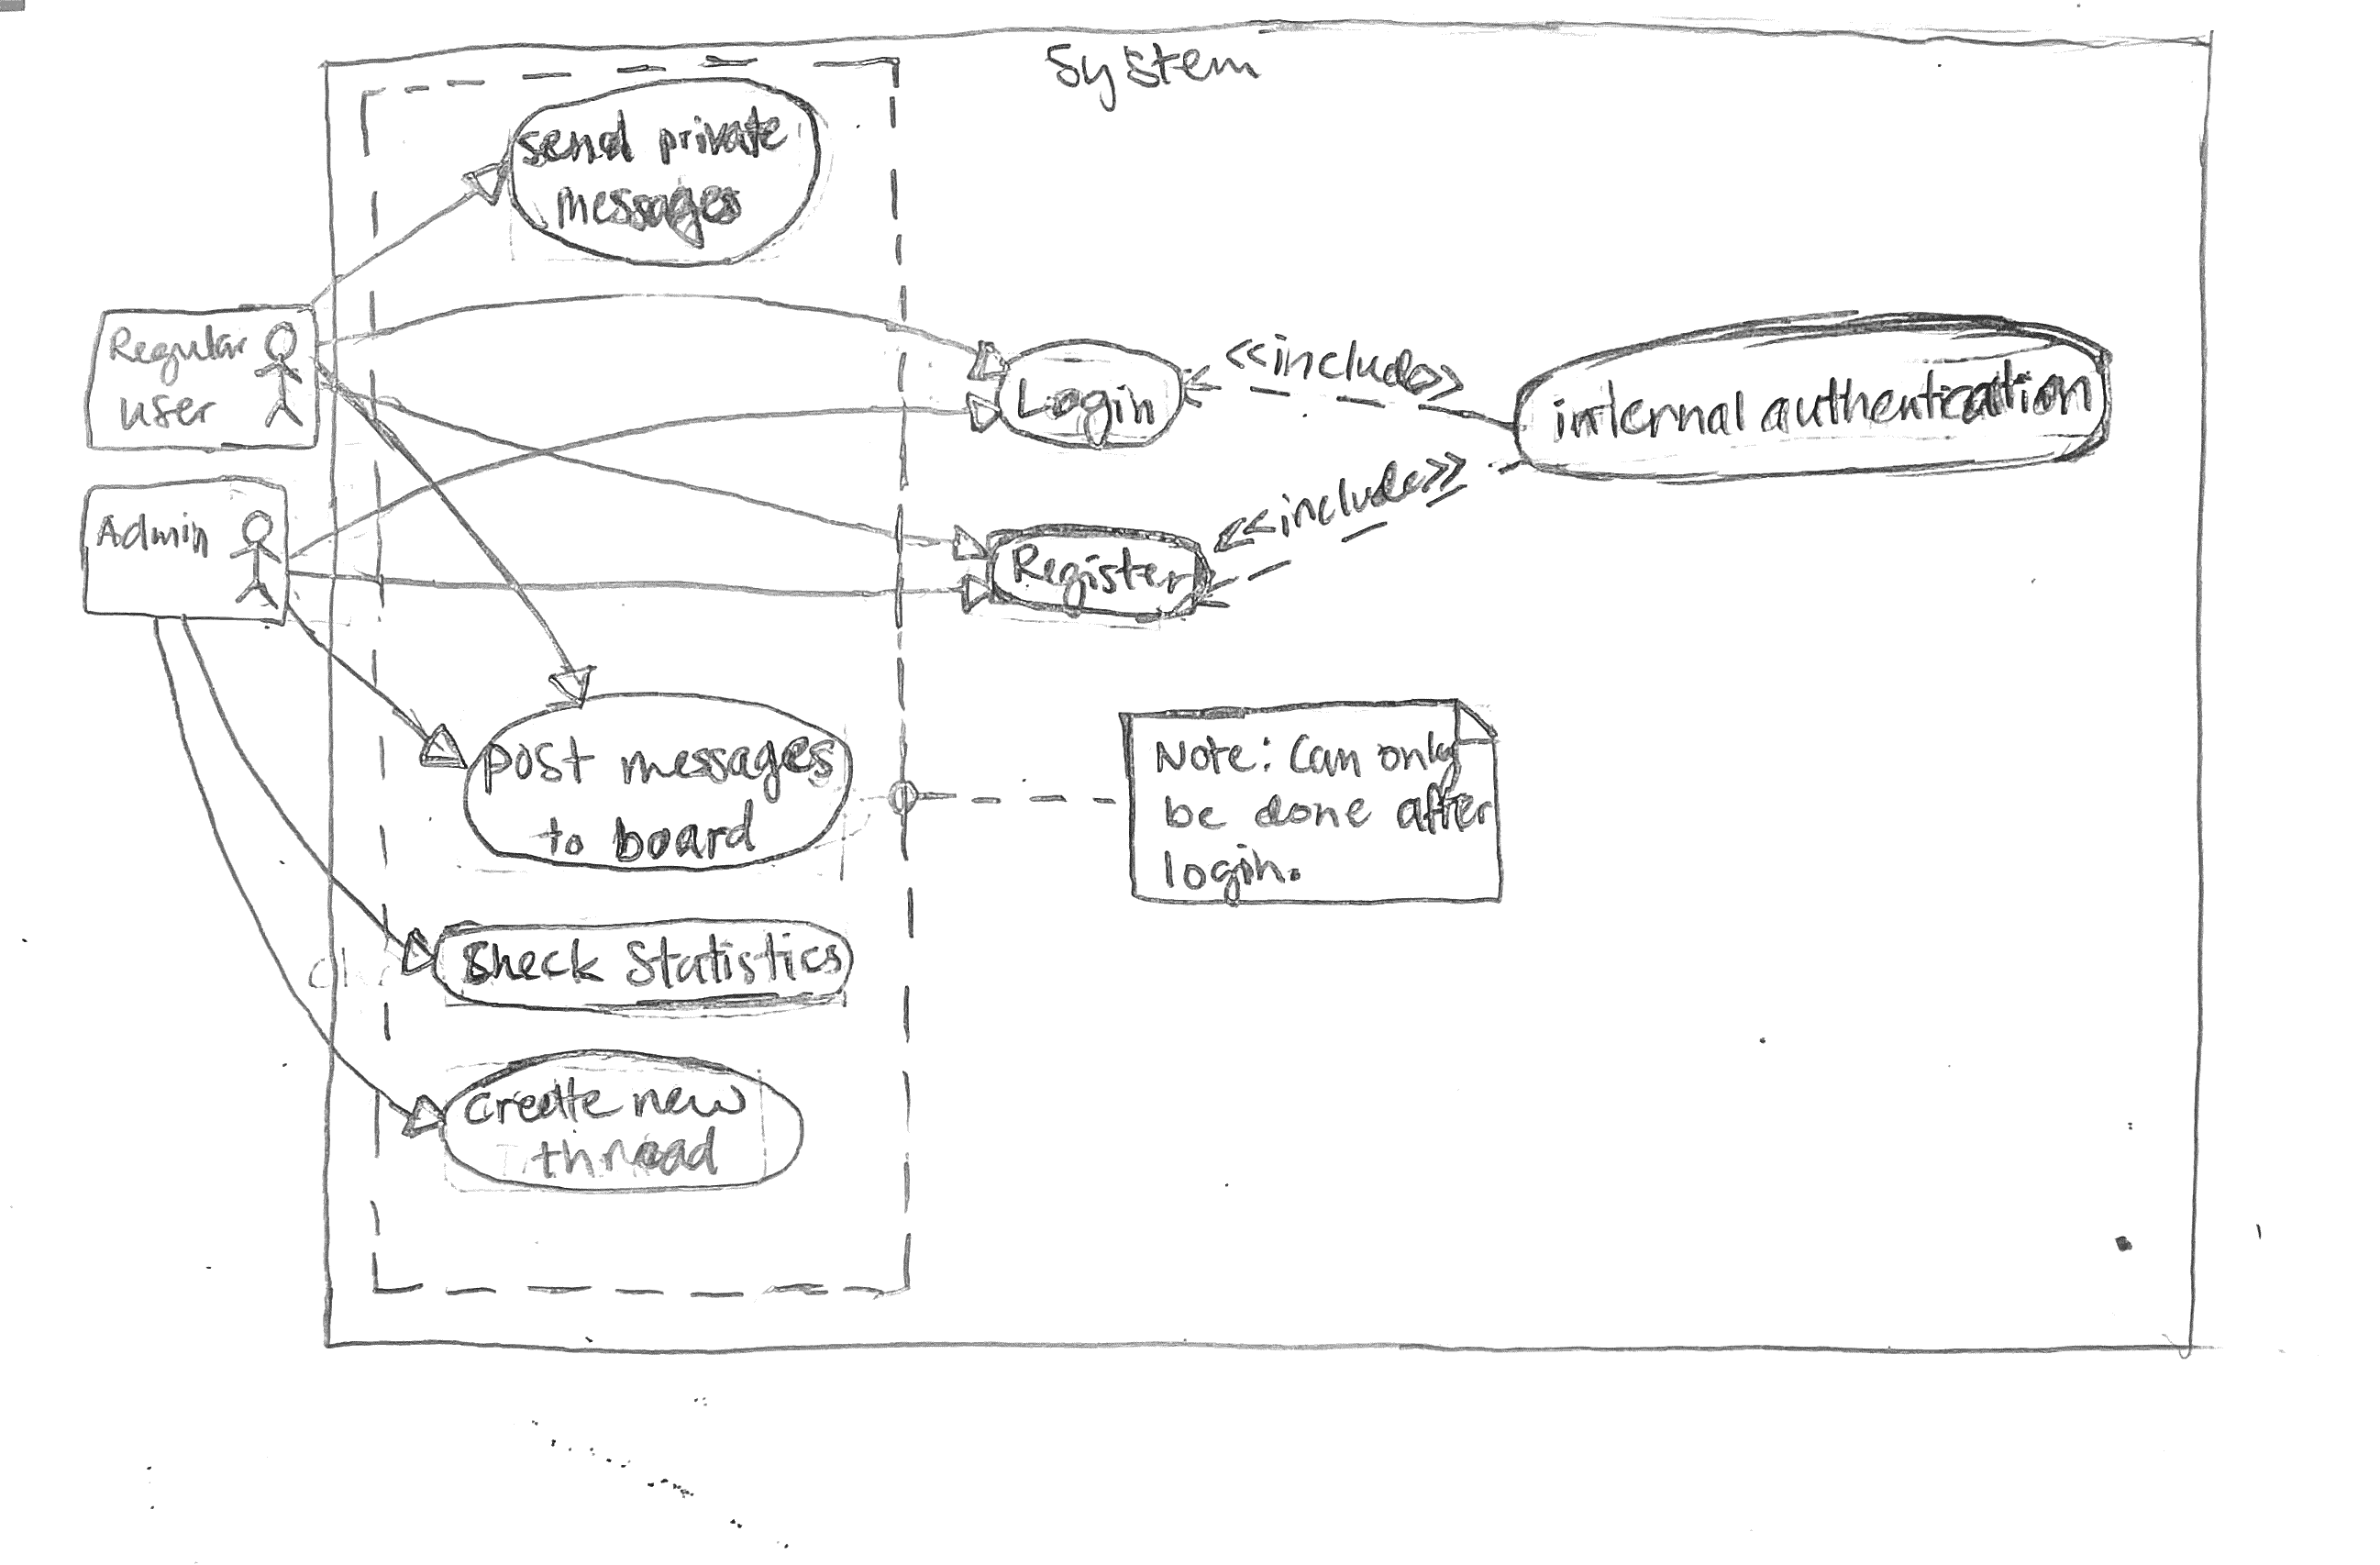 System
send private
messages
Regular
user
Admin
Login
<<include>>
internal authentication
<<include>>
Register
post messages
to board
Note: Can only
be done after
login.
Check Statistics
create new
thread